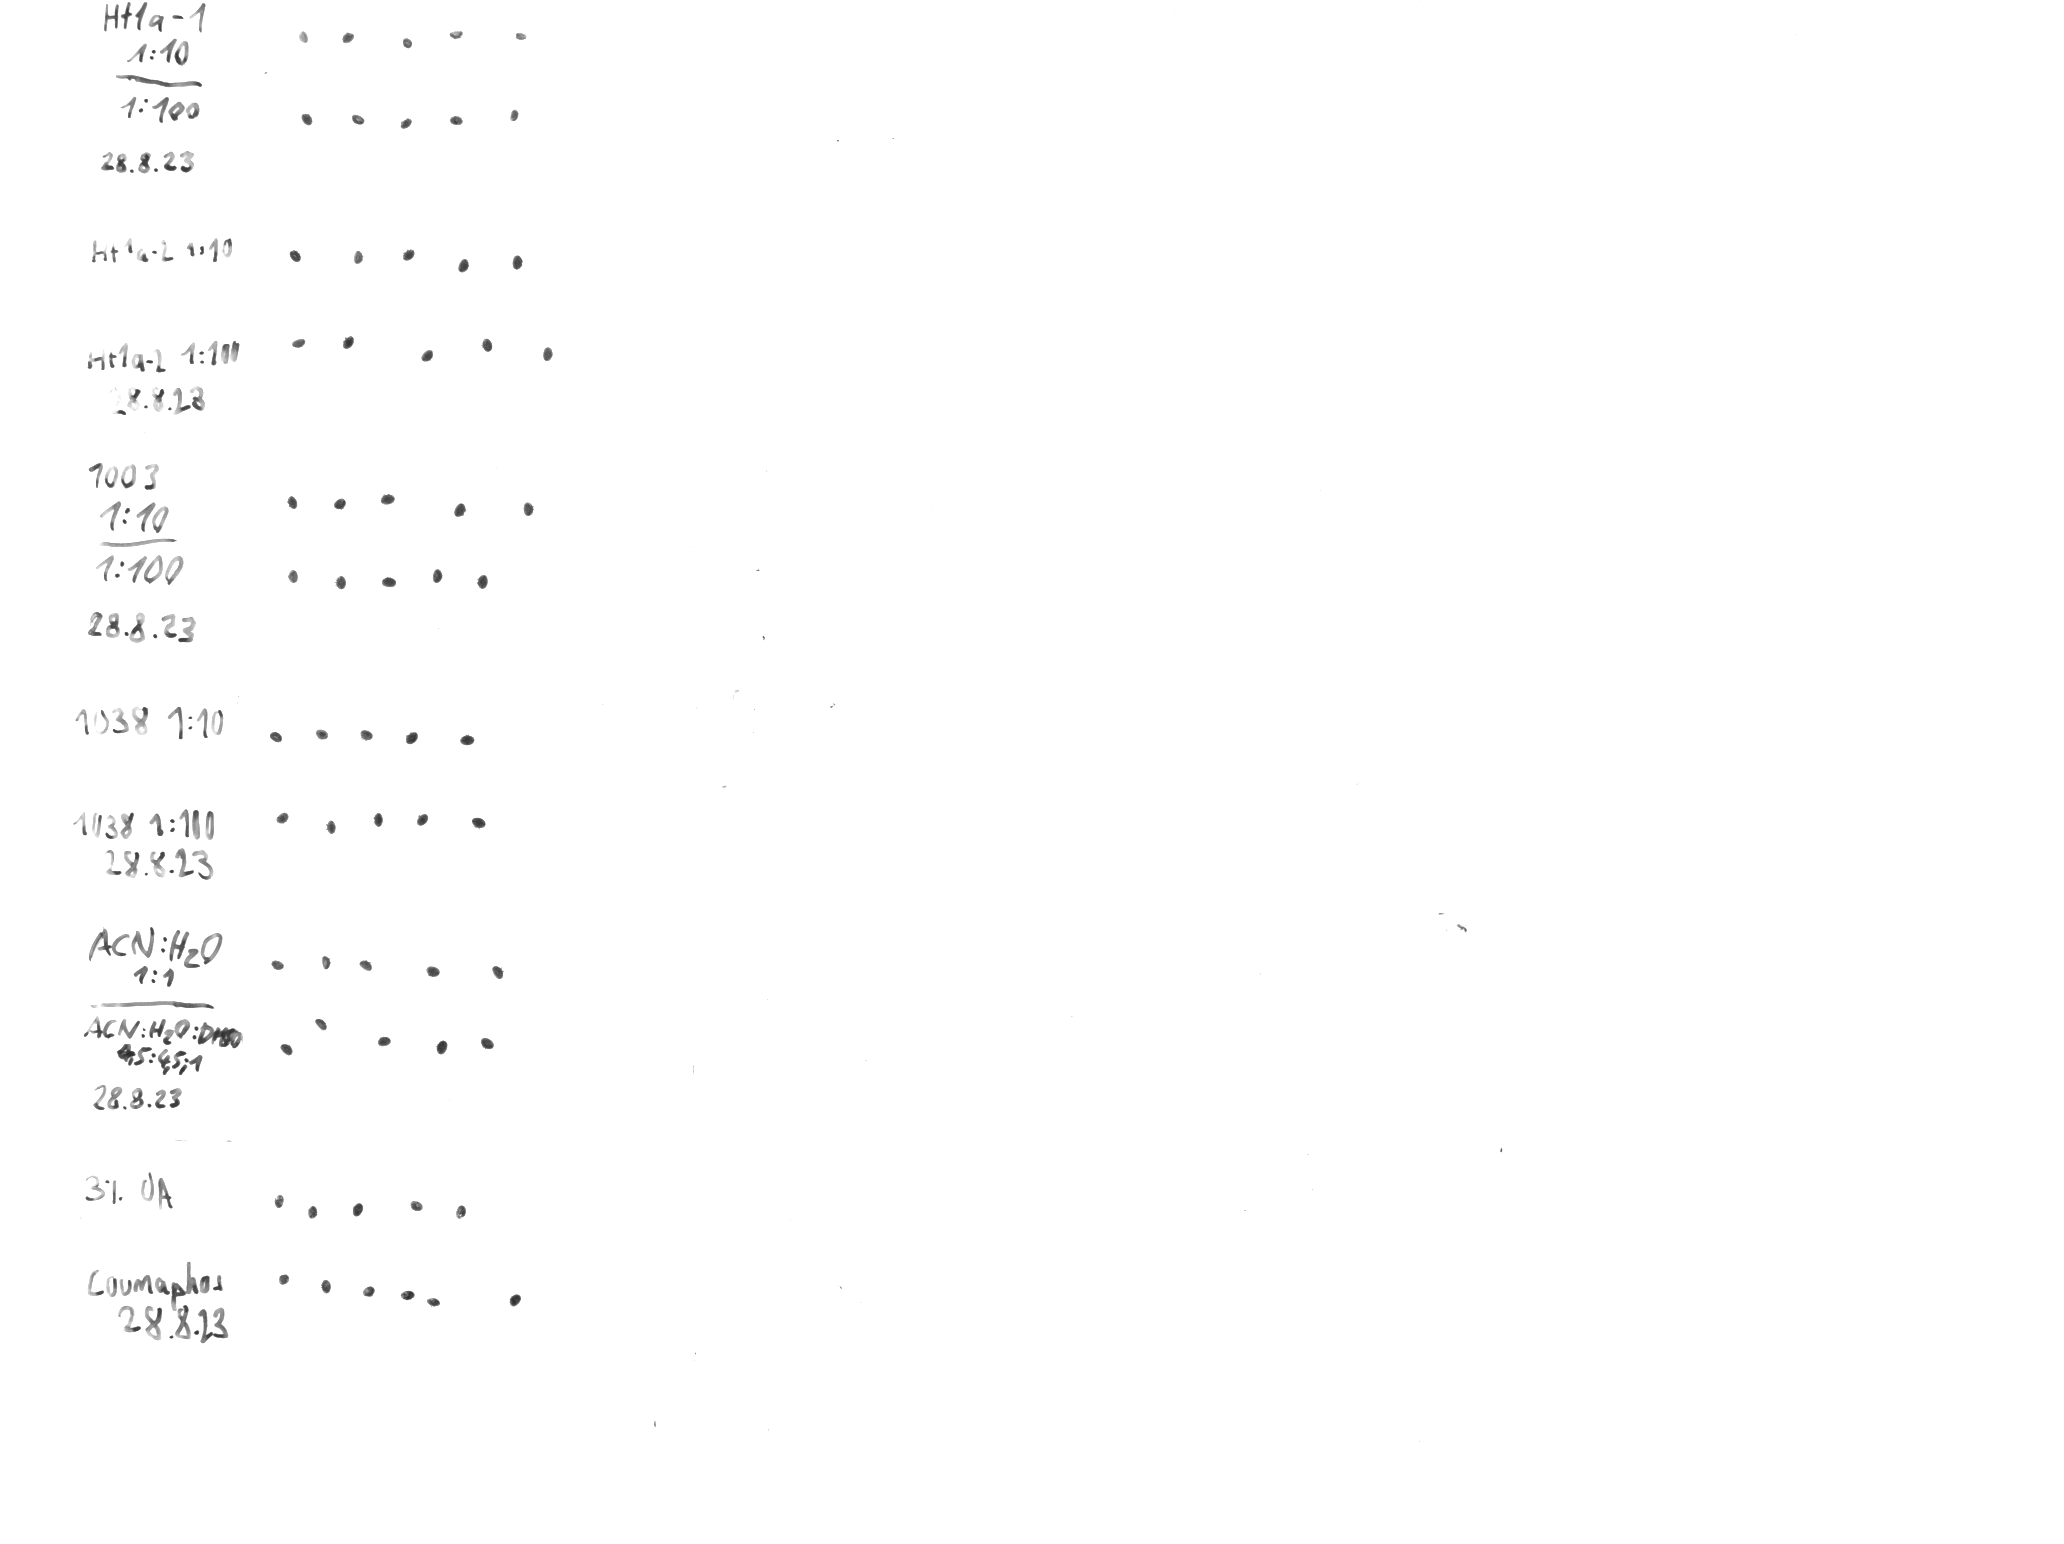 Ht1a-1
1:10
1:100
28.8.23
Ht1a-2 1:10
Ht1a-2 1:100
28.8.23
1003
1:10
1:100
28.8.23
1038 1:10
1038 1:100
28.8.23
ACN:H₂O
1:1
ACN:H₂O:DMSO
4,5:4,5:1
28.8.23
3% OA
Coumaphos
28.8.23